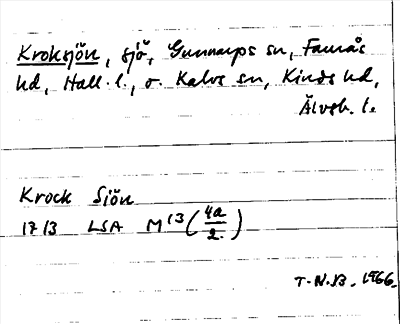 Kroksjön, sjö, Gunnarps sn, Faurås
hd, Hall. l., o. Kalvs sn, Kinds hd,
Älvsb. l.
Krock Siön
1713 LSA M 13 (4a/2.)
T.N.B. 1966.